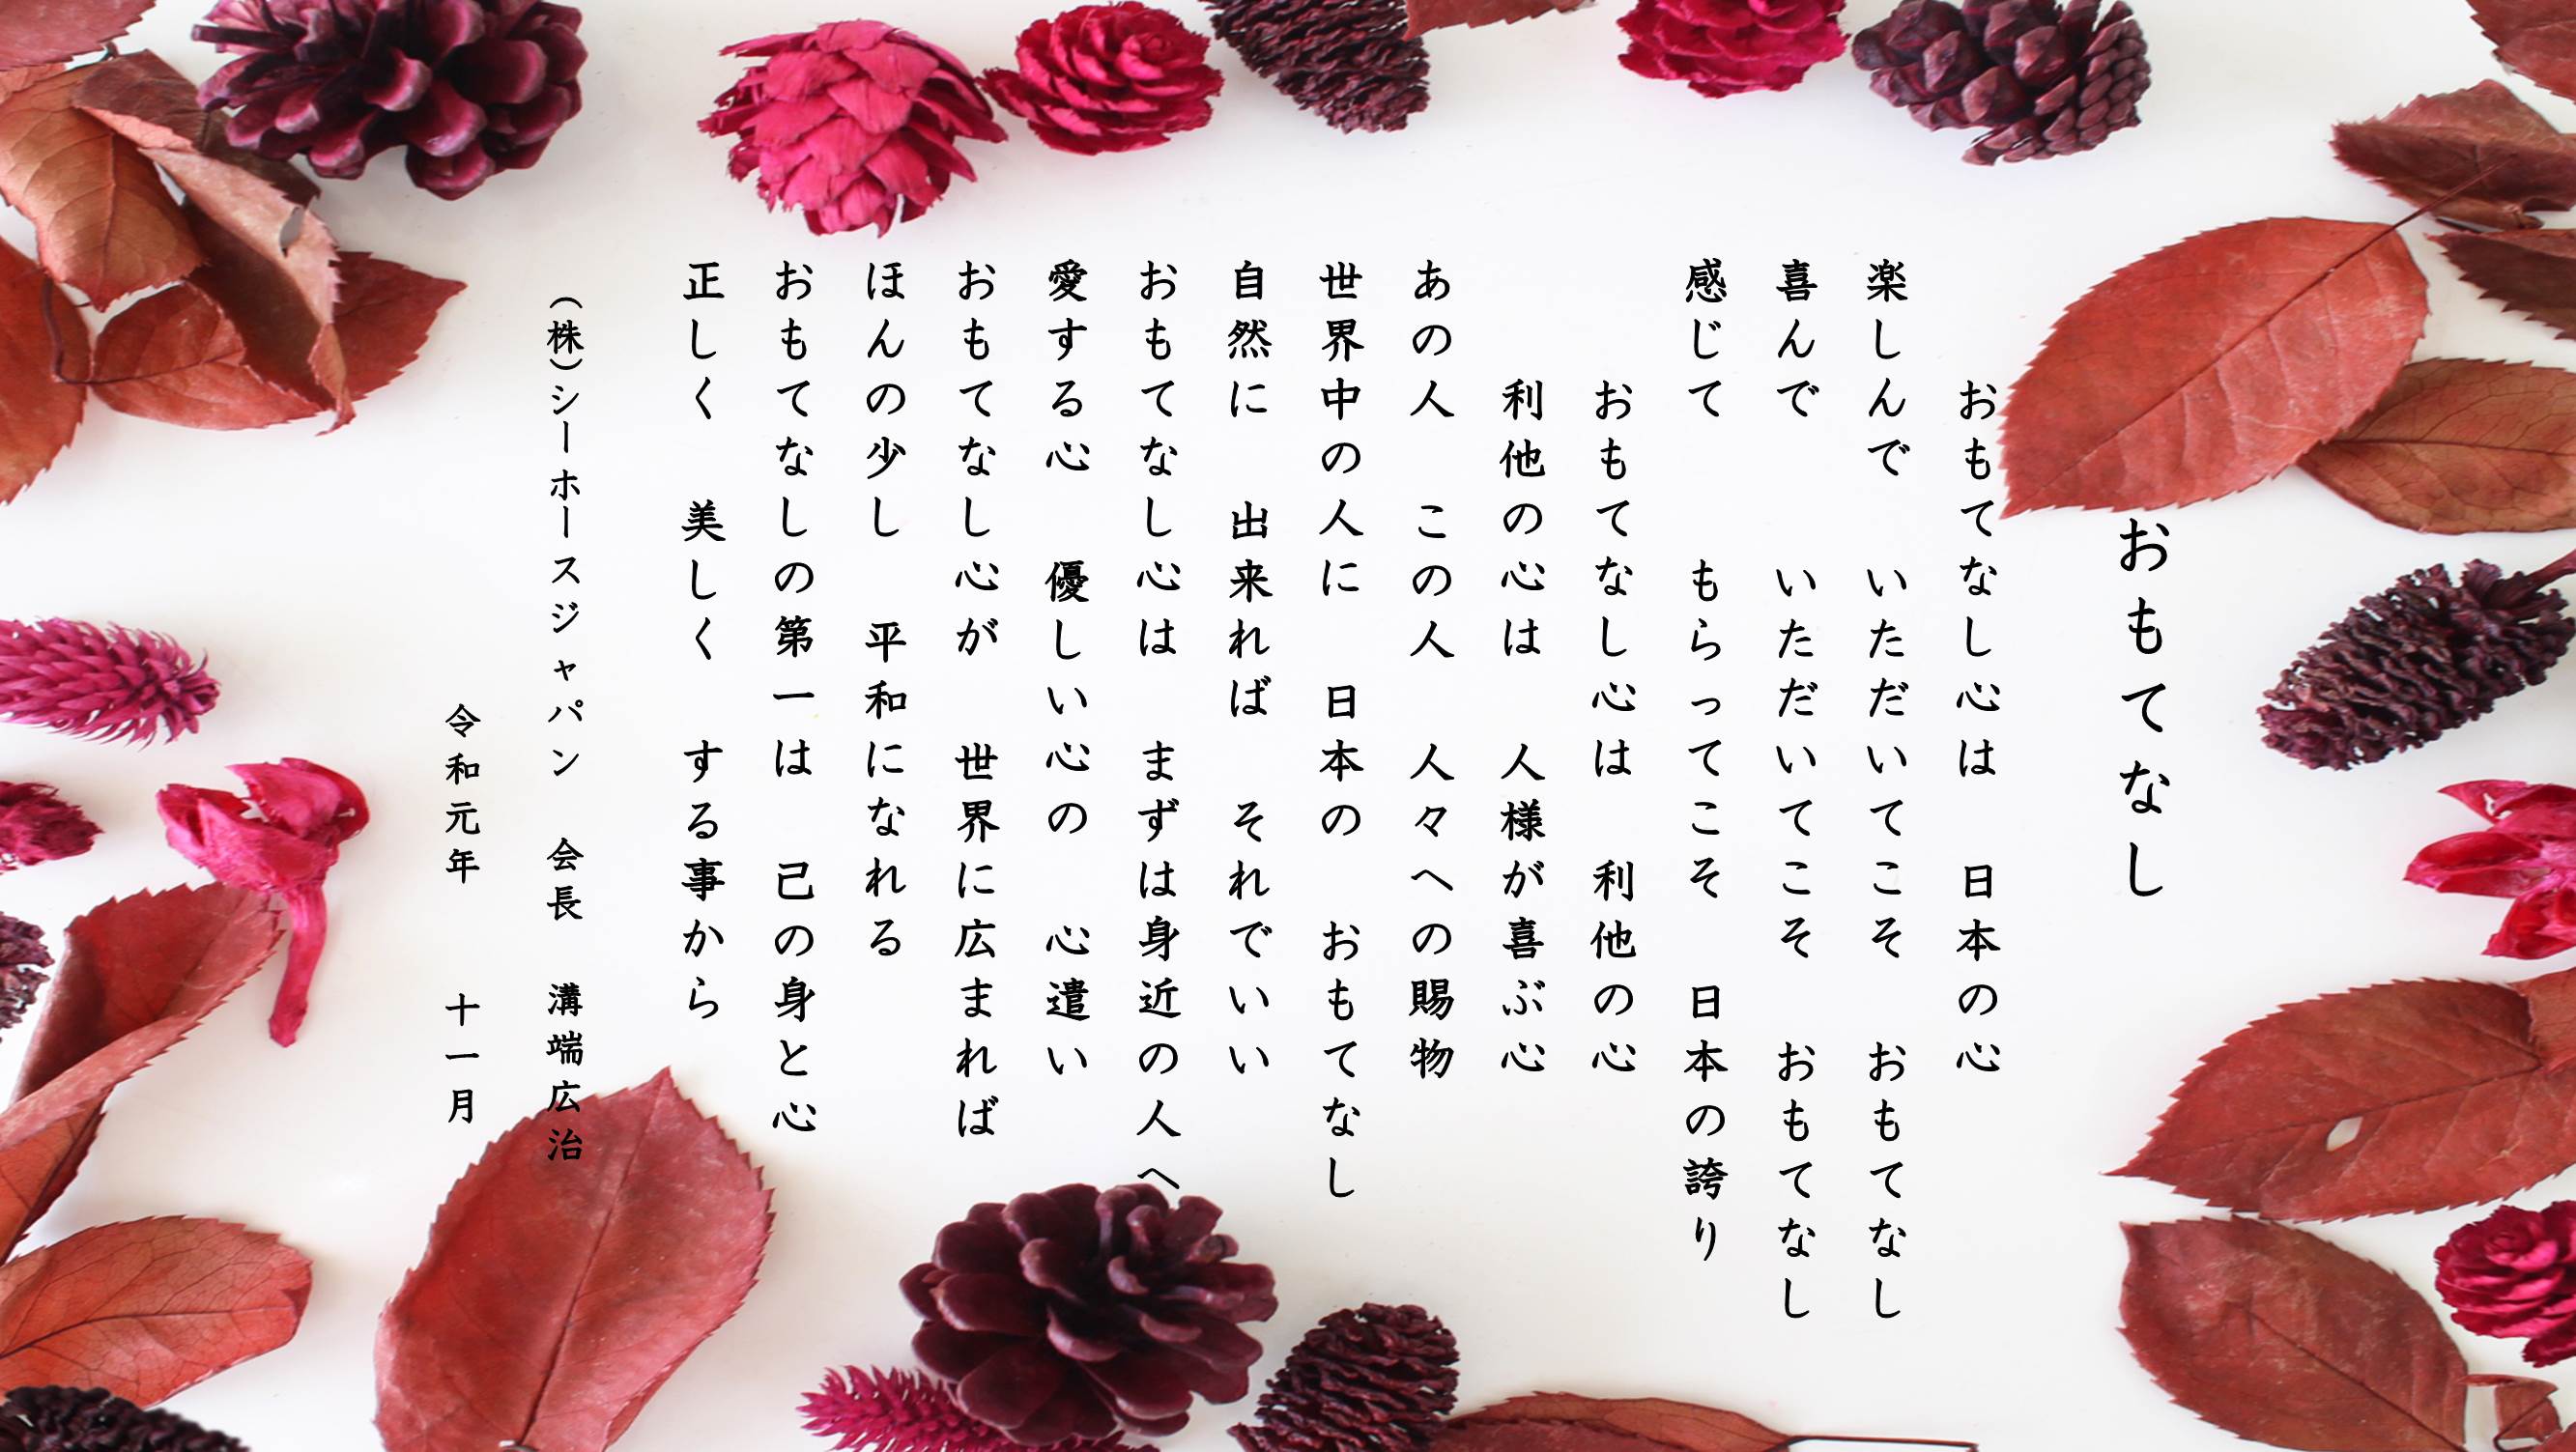 おもてなし
おもてなし心は　日本の心
楽しんで　いただいてこそ　おもてなし
喜んで　　いただいてこそ　おもてなし
感じて　　もらってこそ　日本の誇り
おもてなし心は　利他の心
利他の心は　人様が喜ぶ心
あの人　この人　人々への賜物
世界中の人に　日本の　おもてなし
自然に　出来れば　それでいい
おもてなし心は　まずは身近の人へ
愛する心　優しい心の　心遣い
おもてなし心が　世界に広まれば
ほんの少し　平和になれる
おもてなしの第一は　己の身と心
正しく　美しく　する事から
（株）シーホースジャパン　会長　溝端広治
令和元年　　十一月